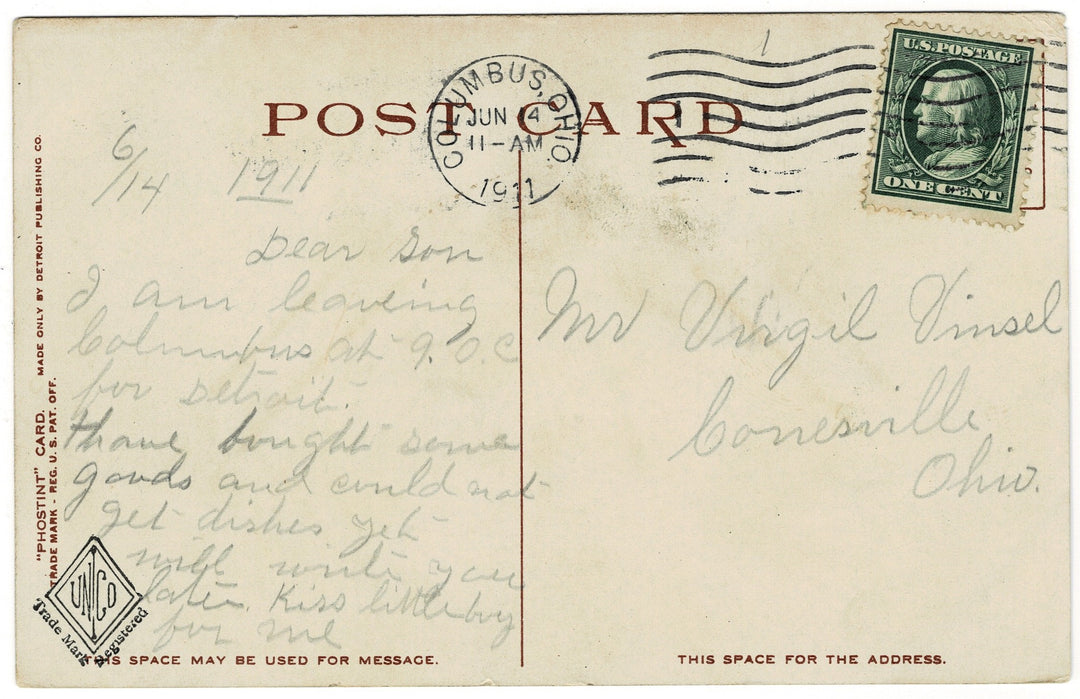 POST CARD
COLUMBUS, OHIO.
JUN 14
11-AM
1911
U.S. POSTAGE
ONE CENT
6/14 1911
Dear Son
I am leaveing
Columbus at 9. O.C
for Detroit.
I have bought some
goods and could not
get dishes yet
will write you
later. Kiss little boy
for me
Mr Virgil Vinsel
Conesville
Ohio.
"PHOSTINT" CARD. MADE ONLY BY DETROIT PUBLISHING CO.
TRADE MARK - REG. U. S. PAT. OFF.
UNICO
Trade Mark Registered
THIS SPACE MAY BE USED FOR MESSAGE.
THIS SPACE FOR THE ADDRESS.